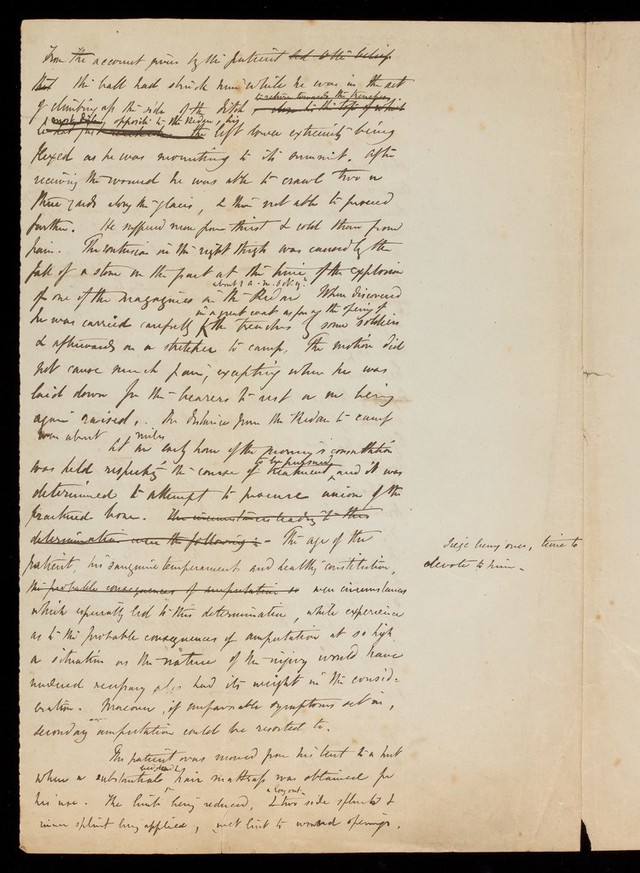 From the account given by the patient led to the belief
that the ball had struck him while he was in the act
to return towards the trenches
of climbing up the side of the ditch close to the top of which
empty ditch, opposite to the Redan, his
the left lower extremity being
flexed as he was mounting to its summit. After
receiving the wound he was able to crawl two or
three yards along the glacis, & then not able to proceed
further. He suffered more from thirst & cold than from
pain. The contusion on the right thigh was caused by the
fall of a stone on the part at the time of the explosion
of one of the magazines in the Redan
about 2 a.m.
When discovered
in a great coat as far as the opening of
he was carried carefully the trenches by some soldiers
& afterwards on a stretcher to camp. The motion did
not cause much pain, excepting when he was
laid down for the bearers to rest or on being
again raised. The distance from the Redan to camp
was about miles
At an early hour of the morning a consultation
was held respecting the course of treatment
to be pursued
and it was
determined to attempt to procure union of the
fractured bone. The circumstances leading to this
determination were the following:- The age of the
patient, his sanguine temperament and healthy constitution,
the probable consequences of amputation so were circumstances
which especially led to this determination, while experience
as to the probable consequences of amputation at so high
a situation as the nature of the injury would have
rendered necessary also had its weight in the consid-
eration. Moreover, if unfavorable symptoms set in,
secondary amputation could be resorted to.
The patient was moved from his tent to a hut
where a substantial hair mattrass was obtained for
his use. The limb being reduced, a long out & two side splints &
inner splint being applied, wet lint to wound openings.
Siege being over, time to
devote to him.